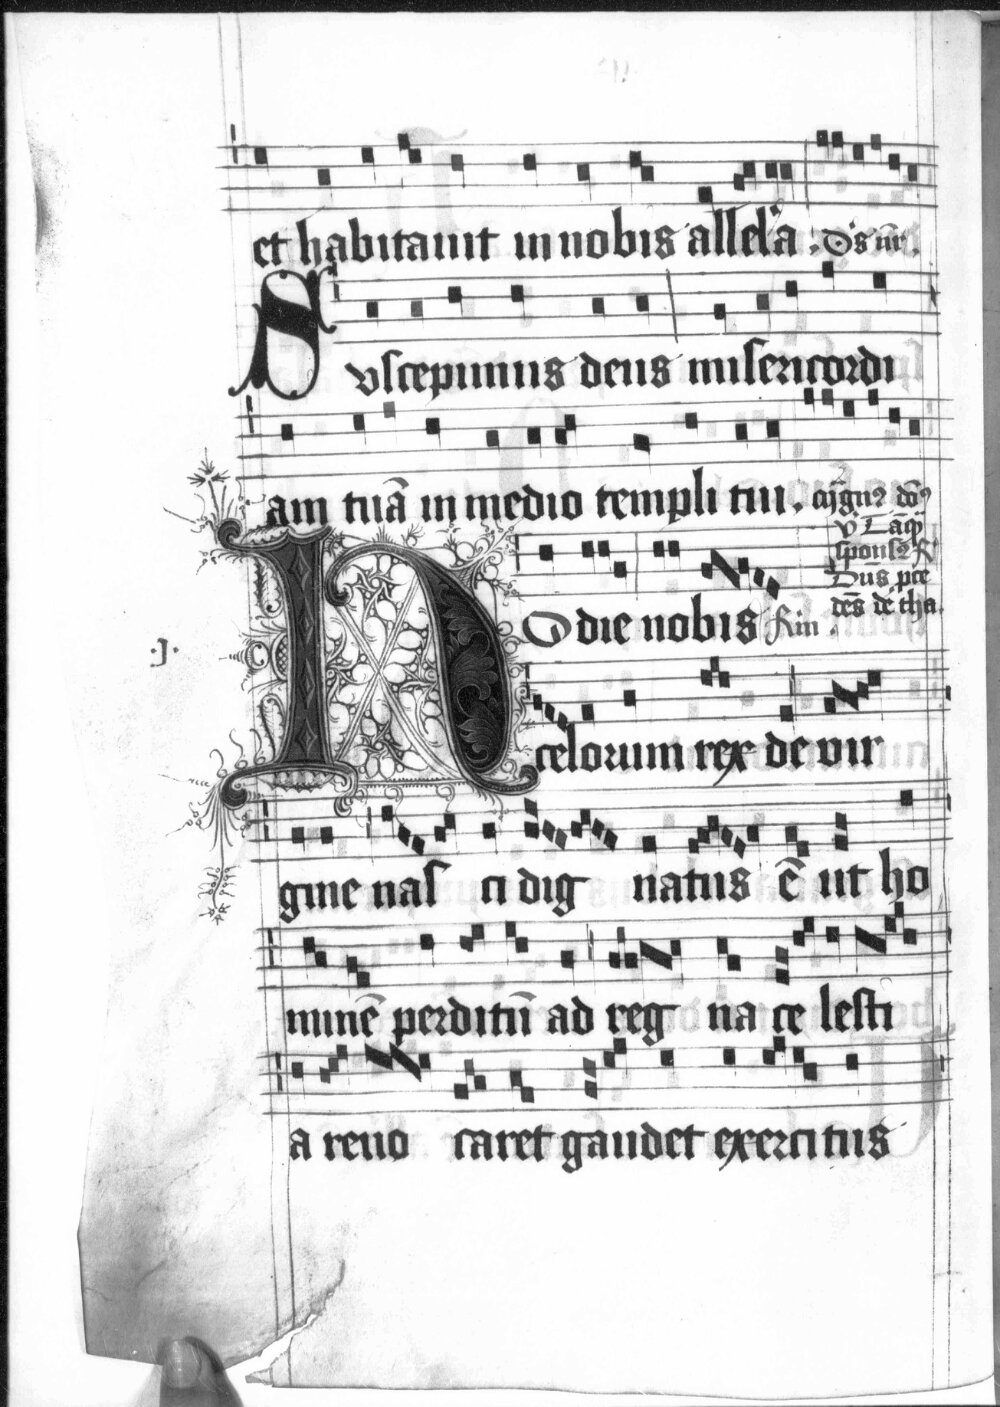 et habitauit in nobis allel'a . d's nr̄.
Suscepimus deus misericordi
am tuā in medio templi tui.
v̓
Hodie nobis
.j.
celorum rex de vir
gine nas ci dig natus ē ut ho
minē perditū ad reg na ce lesti
a reuo caret gaudet exercitus